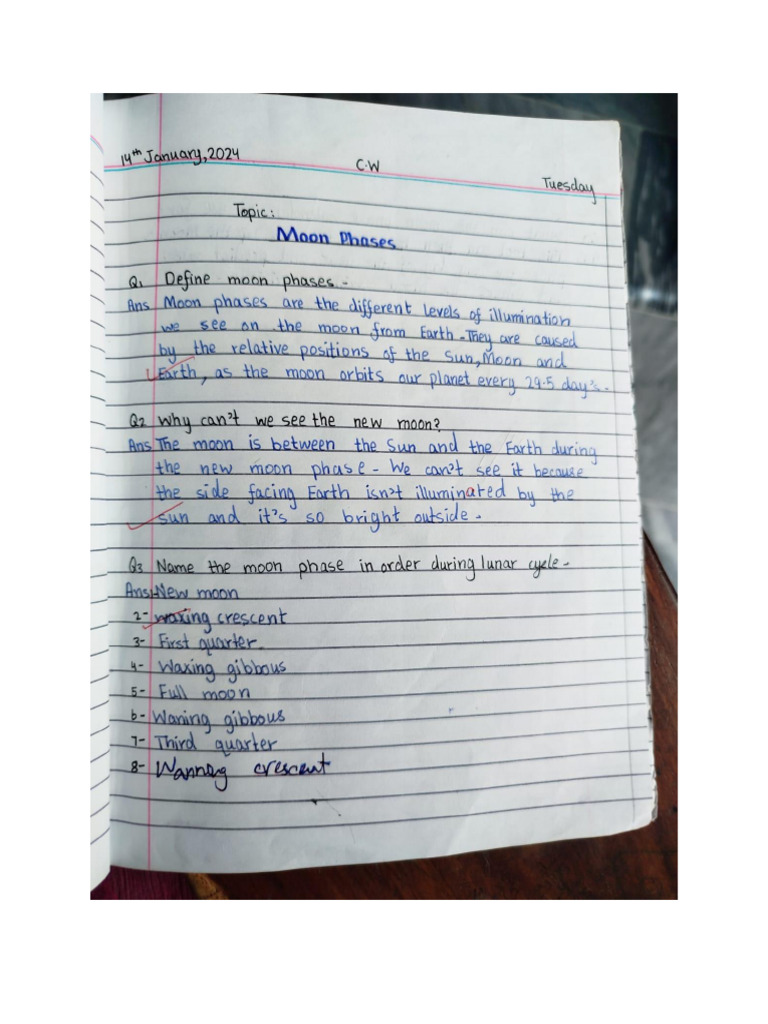 14th January, 2024
C.W
Tuesday
Topic:
Moon Phases
Q1 Define moon phases.
Ans Moon phases are the different levels of illumination
we see on the moon from Earth. They are caused
by the relative positions of the Sun, Moon and
Earth, as the moon orbits our planet every 29.5 day's.
Q2 Why can't we see the new moon?
Ans The moon is between the Sun and the Earth during
the new moon phase. We can't see it because
the side facing Earth isn't illuminated by the
sun and it's so bright outside.
Q3 Name the moon phase in order during lunar cycle.
Ans 1- New moon
2- waxing crescent
3- First quarter.
4- Waxing gibbous
5- Full moon
6- Waning gibbous
7- Third quarter
8- Wanning crescent